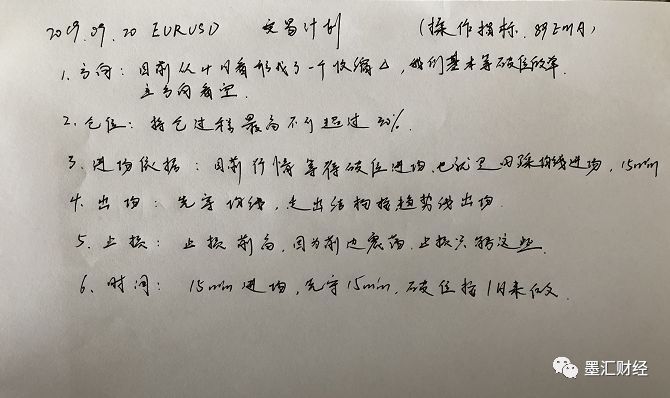 2019.09.20 EURUSD 交易计划 (操作指标:88EMA)
1、方向:目前从4H看形成了一个收缩△,我们基本等破位做单.
主方向看空.
2、仓位:持仓过程最高不可超过20%.
3、进场依据:目前行情等待破位进场,也就是回踩均线进场,15min
4、出场:先守均线,走出结构按趋势线出场.
5、止损:止损前高,因为前边震荡,止损只好这些.
6、时间:15min进场,先守15min,破位按1H来
墨汇财经